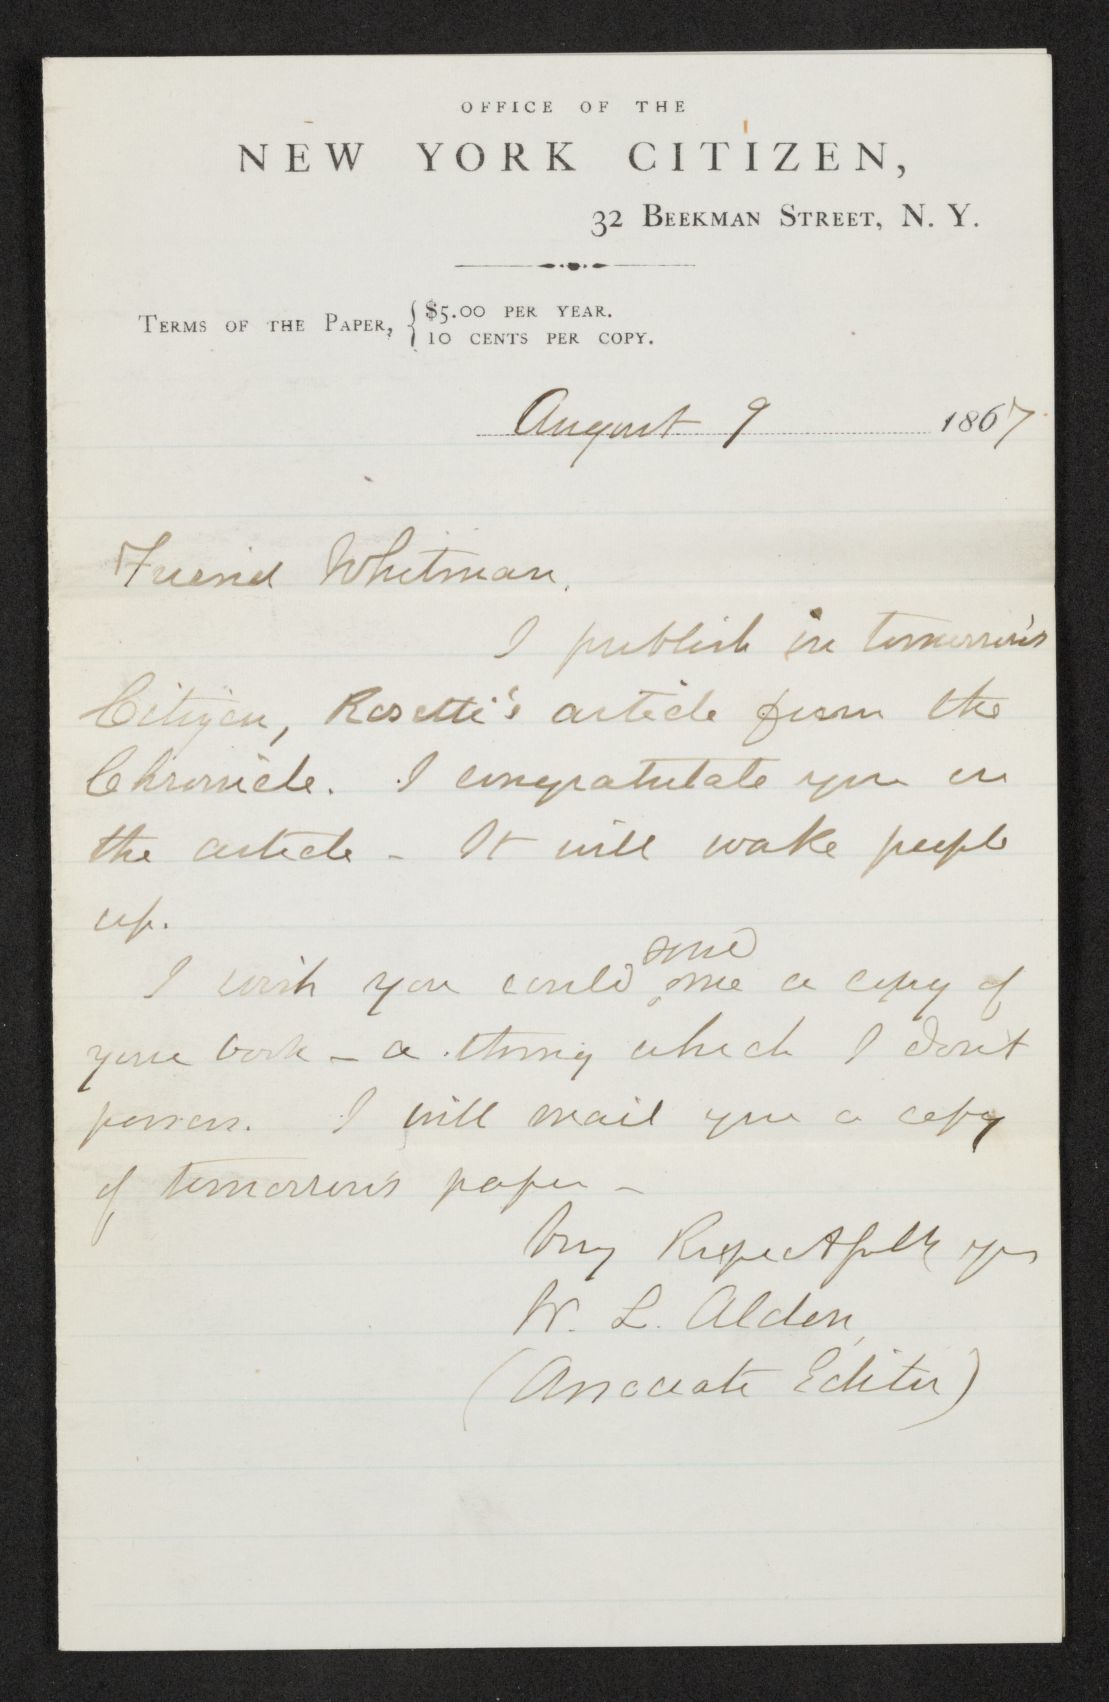 OFFICE OF THE
NEW YORK CITIZEN,
32 BEEKMAN STREET, N. Y.
TERMS OF THE PAPER, { $5.00 PER YEAR.
10 CENTS PER COPY.
August 9 1867
Friend Whitman,
I publish in tomorrow's
Citizen, Rosetti's article from the
Chronicle. I congratulate you on
the article – It will wake people
up.
send
I wish you could me a copy of
your book – a thing which I don't
possess. I will mail you a copy
of tomorrow's paper –
Very Respectfully yrs
W. L. Alden,
(Associate Editor)